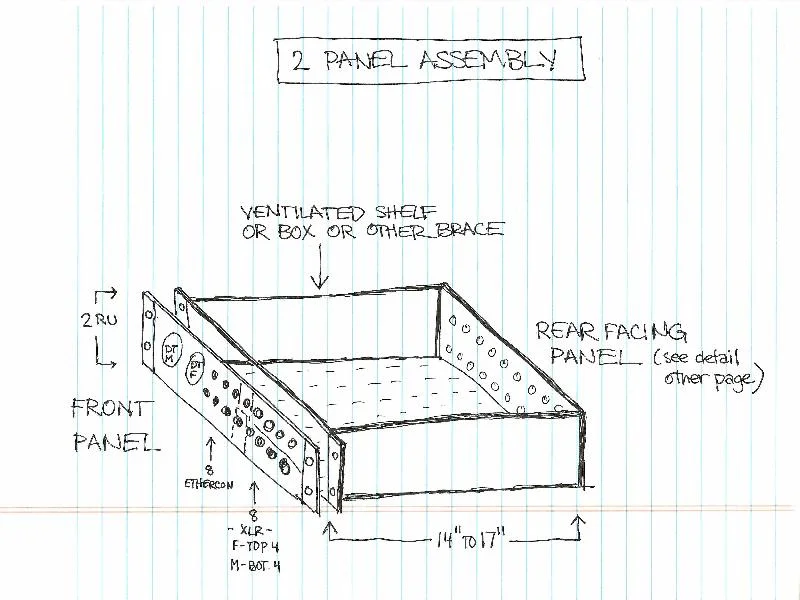 2 PANEL ASSEMBLY
VENTILATED SHELF
OR BOX OR OTHER BRACE
2 RU
REAR FACING
PANEL (see detail
other page)
DT
M
DT
F
FRONT
PANEL
8
ETHERCON
8
- XLR -
F-TOP 4
M-BOT 4
14" TO 17"